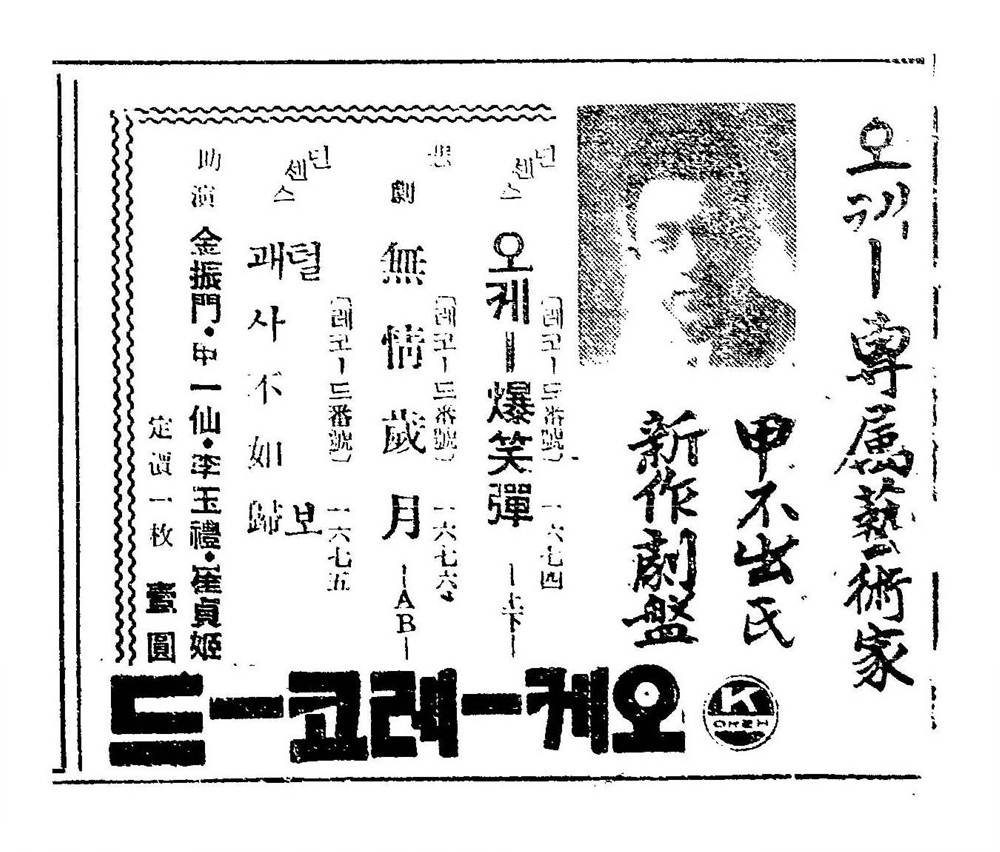 오케ー專屬藝術家
申不出氏
新作劇盤
(레코ー드番號) 一六七四
넌센스 오케ー爆笑彈 ー上下ー
(레코ー드番號) 一六七六
悲劇 無情歲月 ーABー
(레코ー드番號) 一六七五
넌센스 털보
괘사不如歸
助演 金振門・申一仙・李玉禮・崔貞姬
定價一枚 壹圓
K
OKEH
오케ー레코ー드